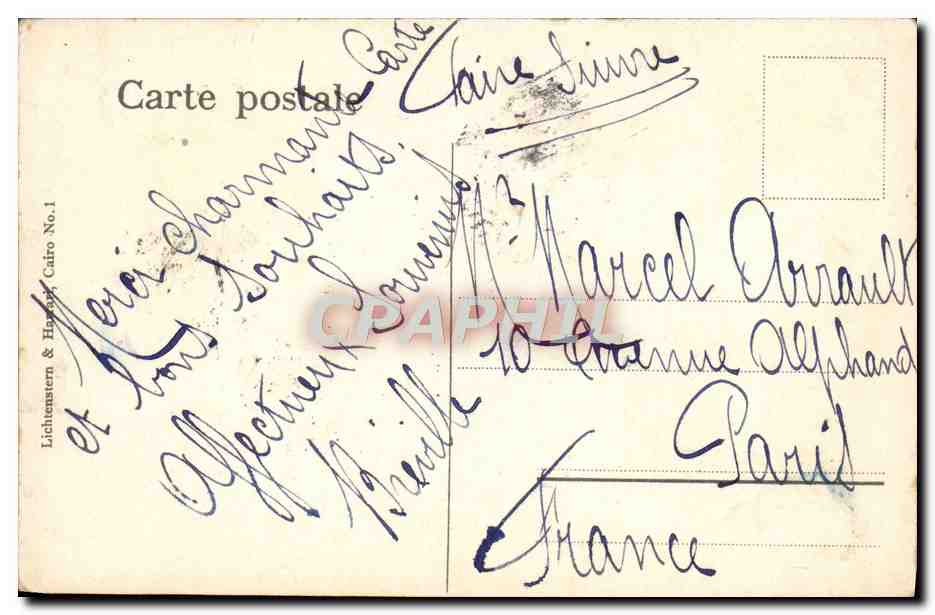 Carte postale
Faire Suivre
Merci Charmante Carte
et bons Souhaits.
Affectueux Souvenirs
Bréville
Mr Marcel Arrault
10 Avenue Alphand
Paris
France
Lichtenstern & Harari, Cairo No. 1
CPAPHIL